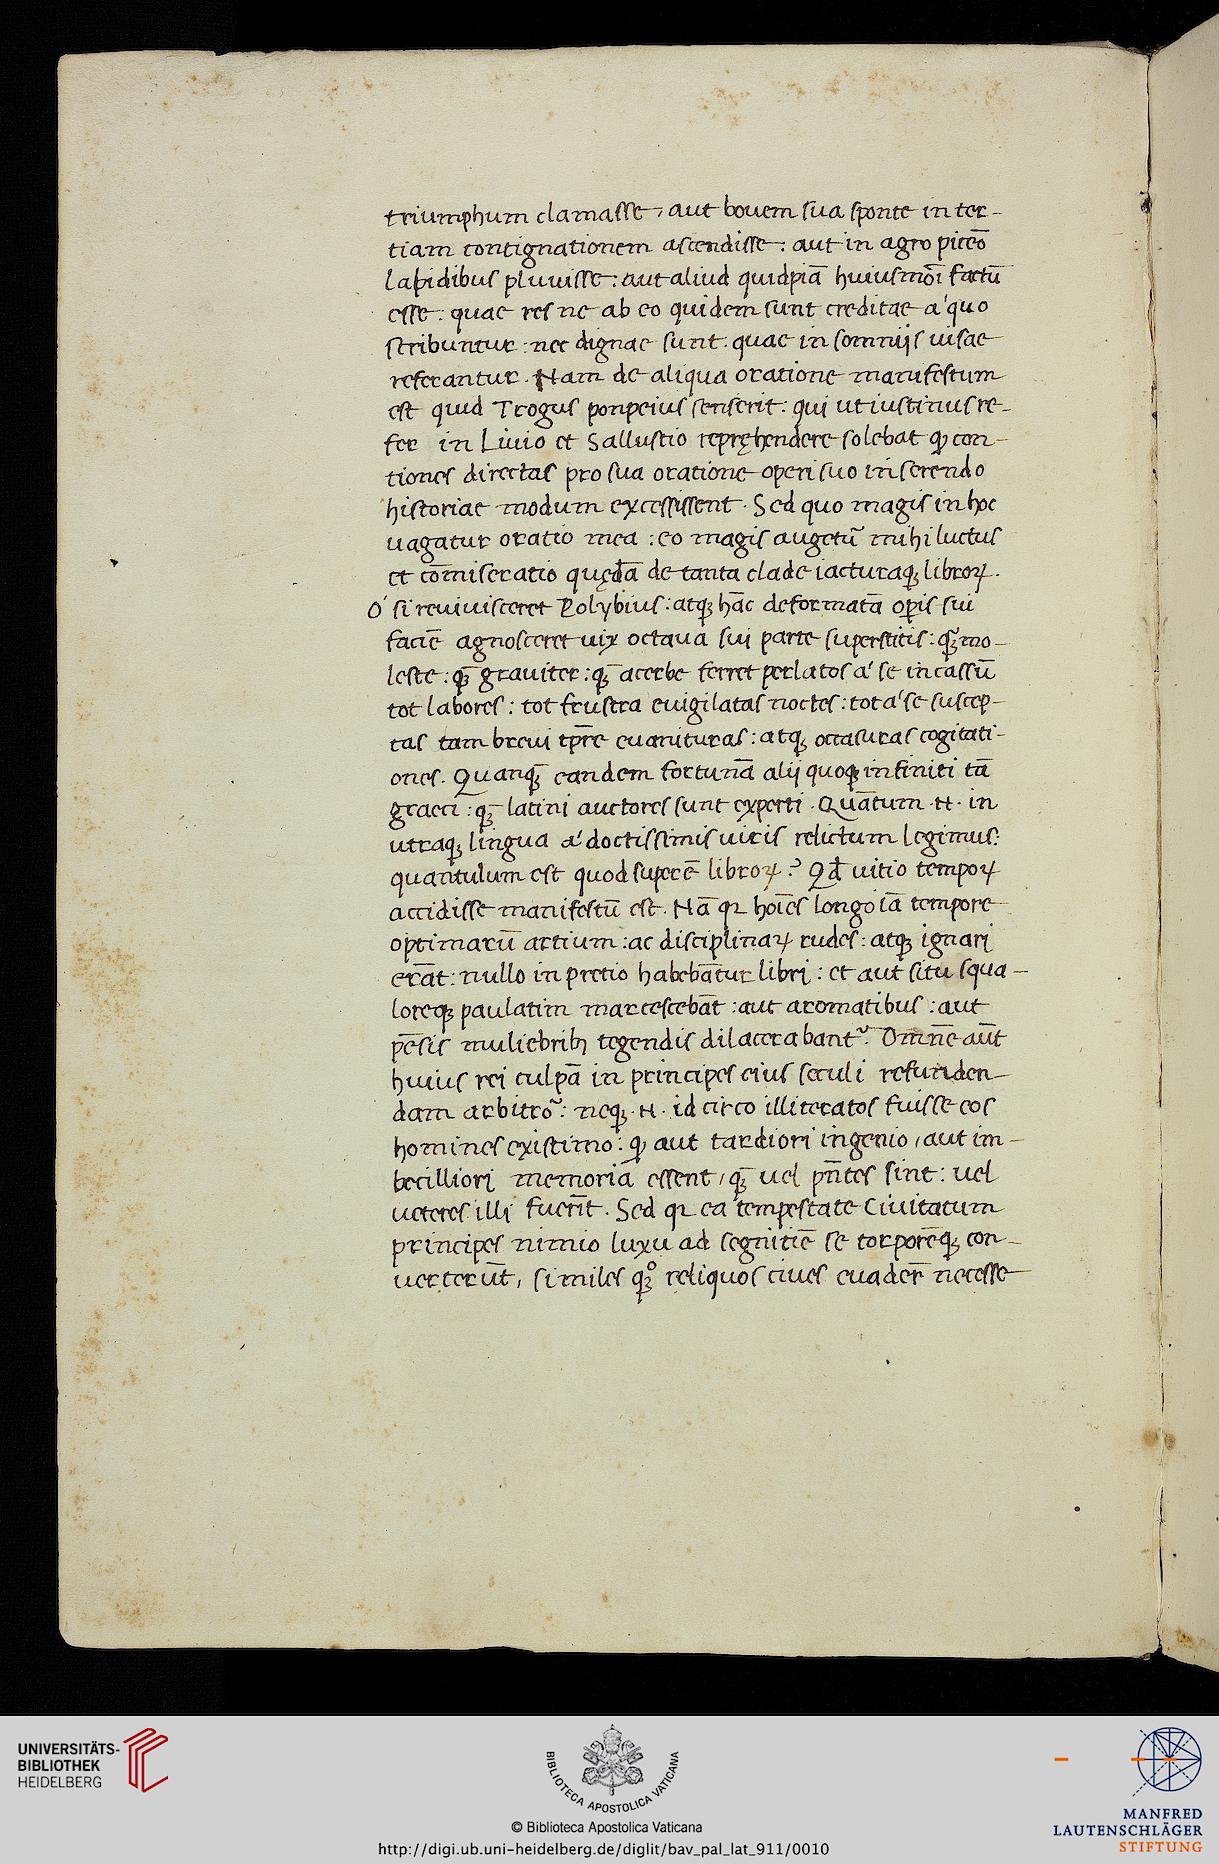 triumphum clamasse, aut bouem sua sponte in ter-
tiam contignationem ascendisse: aut in agro picēo
lapidibus pluuisse: aut aliud quidpiā huiusmōi factū
esse: quae res ne ab eo quidem sunt creditae a' quo
scribuntur: nec dignae sunt. quae in somnijs uisae
referantur. Nam de aliqua oratione manifestum
est quid Trogus ponpeius senserit: qui ut iustinus re-
fer in Liuio et Sallustio repręhendere solebat ꝙ con-
tiones directas pro sua oratione operi suo inserendo
historiae modum excessissent. Sed quo magis in hoc
uagatur oratio mea: eo magis augetū mihi luctus
et cōmiseratio quędā de tanta clade iacturaqꝫ libroꝝ.
O' si reuiuisceret Polybius: atqꝫ hāc deformatā oꝑis sui
faciē agnosceret uix octaua sui parte suꝑstitis: qꝫ̄ mo-
leste: qꝫ̄ grauiter: qꝫ̄ acerbe ferret perlatos a' se incassū
tot labores: tot frustra euigilatas noctes: tot a' se suscep-
tas tam breui tp̄re euanituras: atqꝫ occasuras cogitati-
ones. Quanqꝫ̄ eandem fortunā alij quoqꝫ infiniti tā
graeci: qꝫ̄ latini auctores sunt experti. Quātum .N. in
utraqꝫ lingua a' doctissimis uiris relictum legimus:
quantulum est quod superē libroꝝ? Qd̄ uitio tempoꝝ
accidisse manifestū est. Nā qꝛ hoīes longo iā tempore
optimarū artium: ac disciplinaꝝ rudes: atqꝫ ignari
erāt: nullo in pretio habebātur libri: et aut situ squa-
loreqꝫ paulatim marcescebāt: aut aromatibus: aut
pēsis muliebribꝫ tegendis dilacerabant᷑. Omnē aūt
huius rei culpā in principes eius seculi refunden-
dam arbitro᷑: neqꝫ .N. idcirco illiteratos fuisse eos
homines existimo: ꝙ aut tardiori ingenio, aut im-
becilliori memoriā essent, qꝫ̄ uel pn̄tes sint: uel
ueteres illi fuerīt. Sed qꝛ ea tempestate Ciuitatum
principes nimio luxu ad segnitiē se torporēqꝫ con-
uerterūt, similes qꝫͦ reliquos ciues euader̄ necesse
UNIVERSITÄTS-
BIBLIOTHEK
HEIDELBERG
BIBLIOTECA APOSTOLICA VATICANA
© Biblioteca Apostolica Vaticana
http://digi.ub.uni-heidelberg.de/diglit/bav_pal_lat_911/0010
MANFRED
LAUTENSCHLÄGER
STIFTUNG